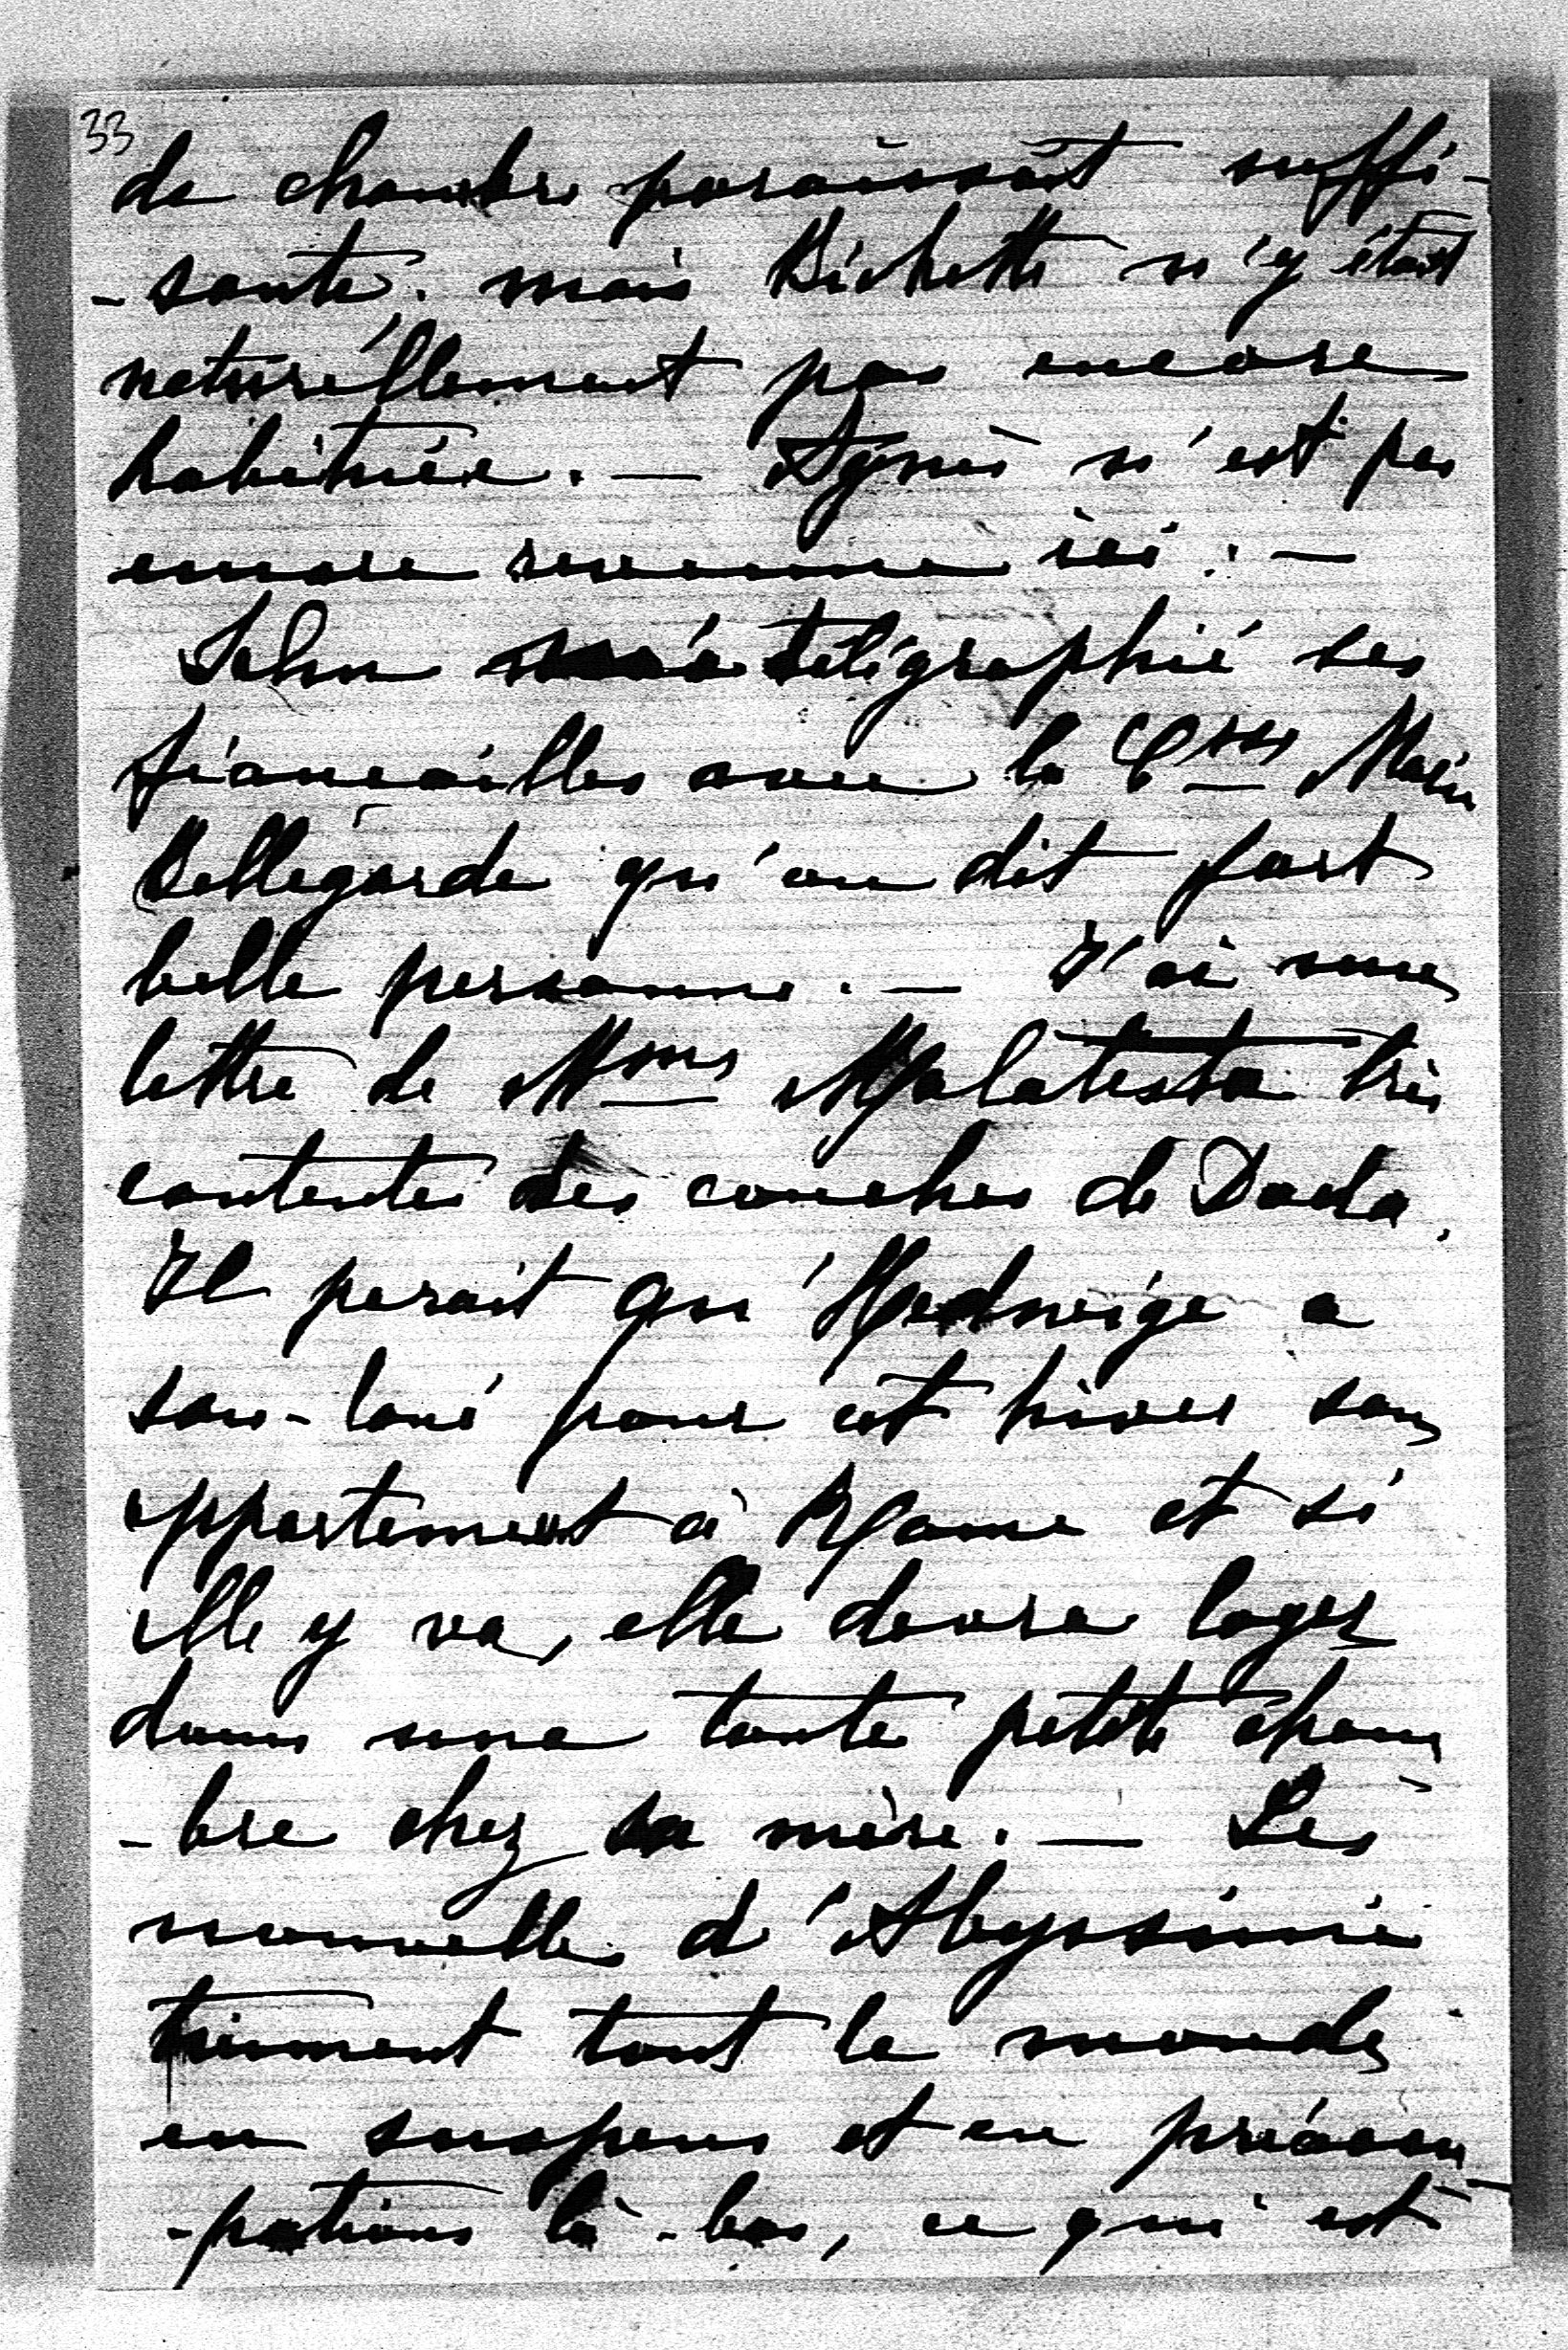 33
de chambre paraissait suffi-
-sante. mais Bichette n'y était
naturellement pas encore
habituée. — Agnès n'est pas
encore revenue ici. —
John m'a télégraphié ses
fiançailles avec la Ctsse Marie
Bellegarde qu'on dit fort
belle personne. — J'ai une
lettre de Mme Malatesta très
contente des couches de Dada.
Il parait qu'Hedwige a
sous-loué pour cet hiver son
appartement à Rome et si
elle y va, elle devra loger
dans une toute petite cham
-bre chez sa mère. — Les
nouvelles d'Abyssinie
tiennent tout le monde
en suspens et en préoccu-
-pations là-bas, ce qui est